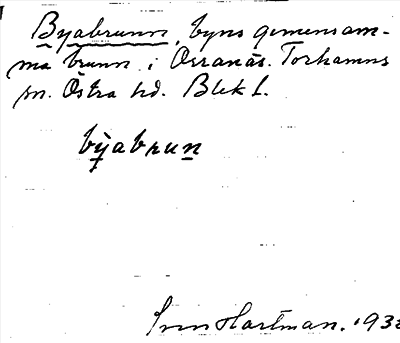 Byabrunn, byns gemensam-
ma brunn i Orranäs. Torhamns
sn. Östra hd. Blek l.
byabrun
Sven Hartman. 193